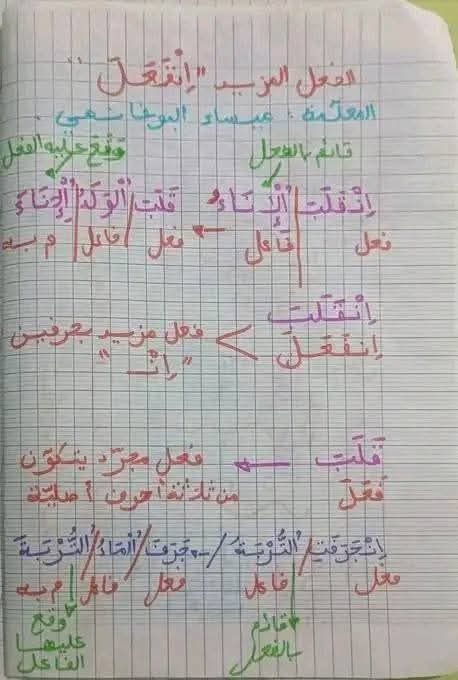 الفعل المزيد "اِنْفَعَلَ"
المعلّمة: ميساء البوخانمي
قائم بالفعل وقع عليه الفعل
اِنْقَلَبَ / اُلْإِنَاءُ ← قَلَبَ / اُلْوَلَدُ / اُلْإِنَاءَ
فعل فَاعل فعل / فاعل / م به
اِنْقَلَبَ
اِنفَعَلَ > فعل مزيد بحرفين
"اِنْـ"
قَلَبَ ← فعل مجرّد يتكوّن
فَعَلَ من ثلاثة أحرف أصليّة
اِنْجَرَفَتِ / اُلتُّرْبَةُ / ← جَرَفَ / اُلْمَاءُ / اُلتُّرْبَةَ
فعل فاعل فعل فاعل م به
قائم وقع
بالفعل عليها
الفاعل